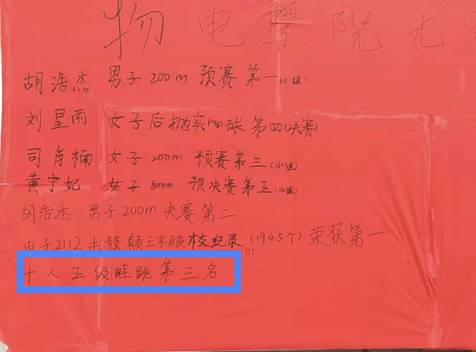 物电学院光荣
胡浩杰 男子200m 预赛第一(小组)
刘星雨 女子后抛实心球 第四(决赛)
司肖楠 女子200m 预赛第三(小组)
黄宁妃 女子800m 预决赛第五(小组)
胡浩杰 男子200m决赛第二
电子2112 击鼓颠三米破校纪录(1945个)荣获第一!!!
十人五级蛙跳第三名